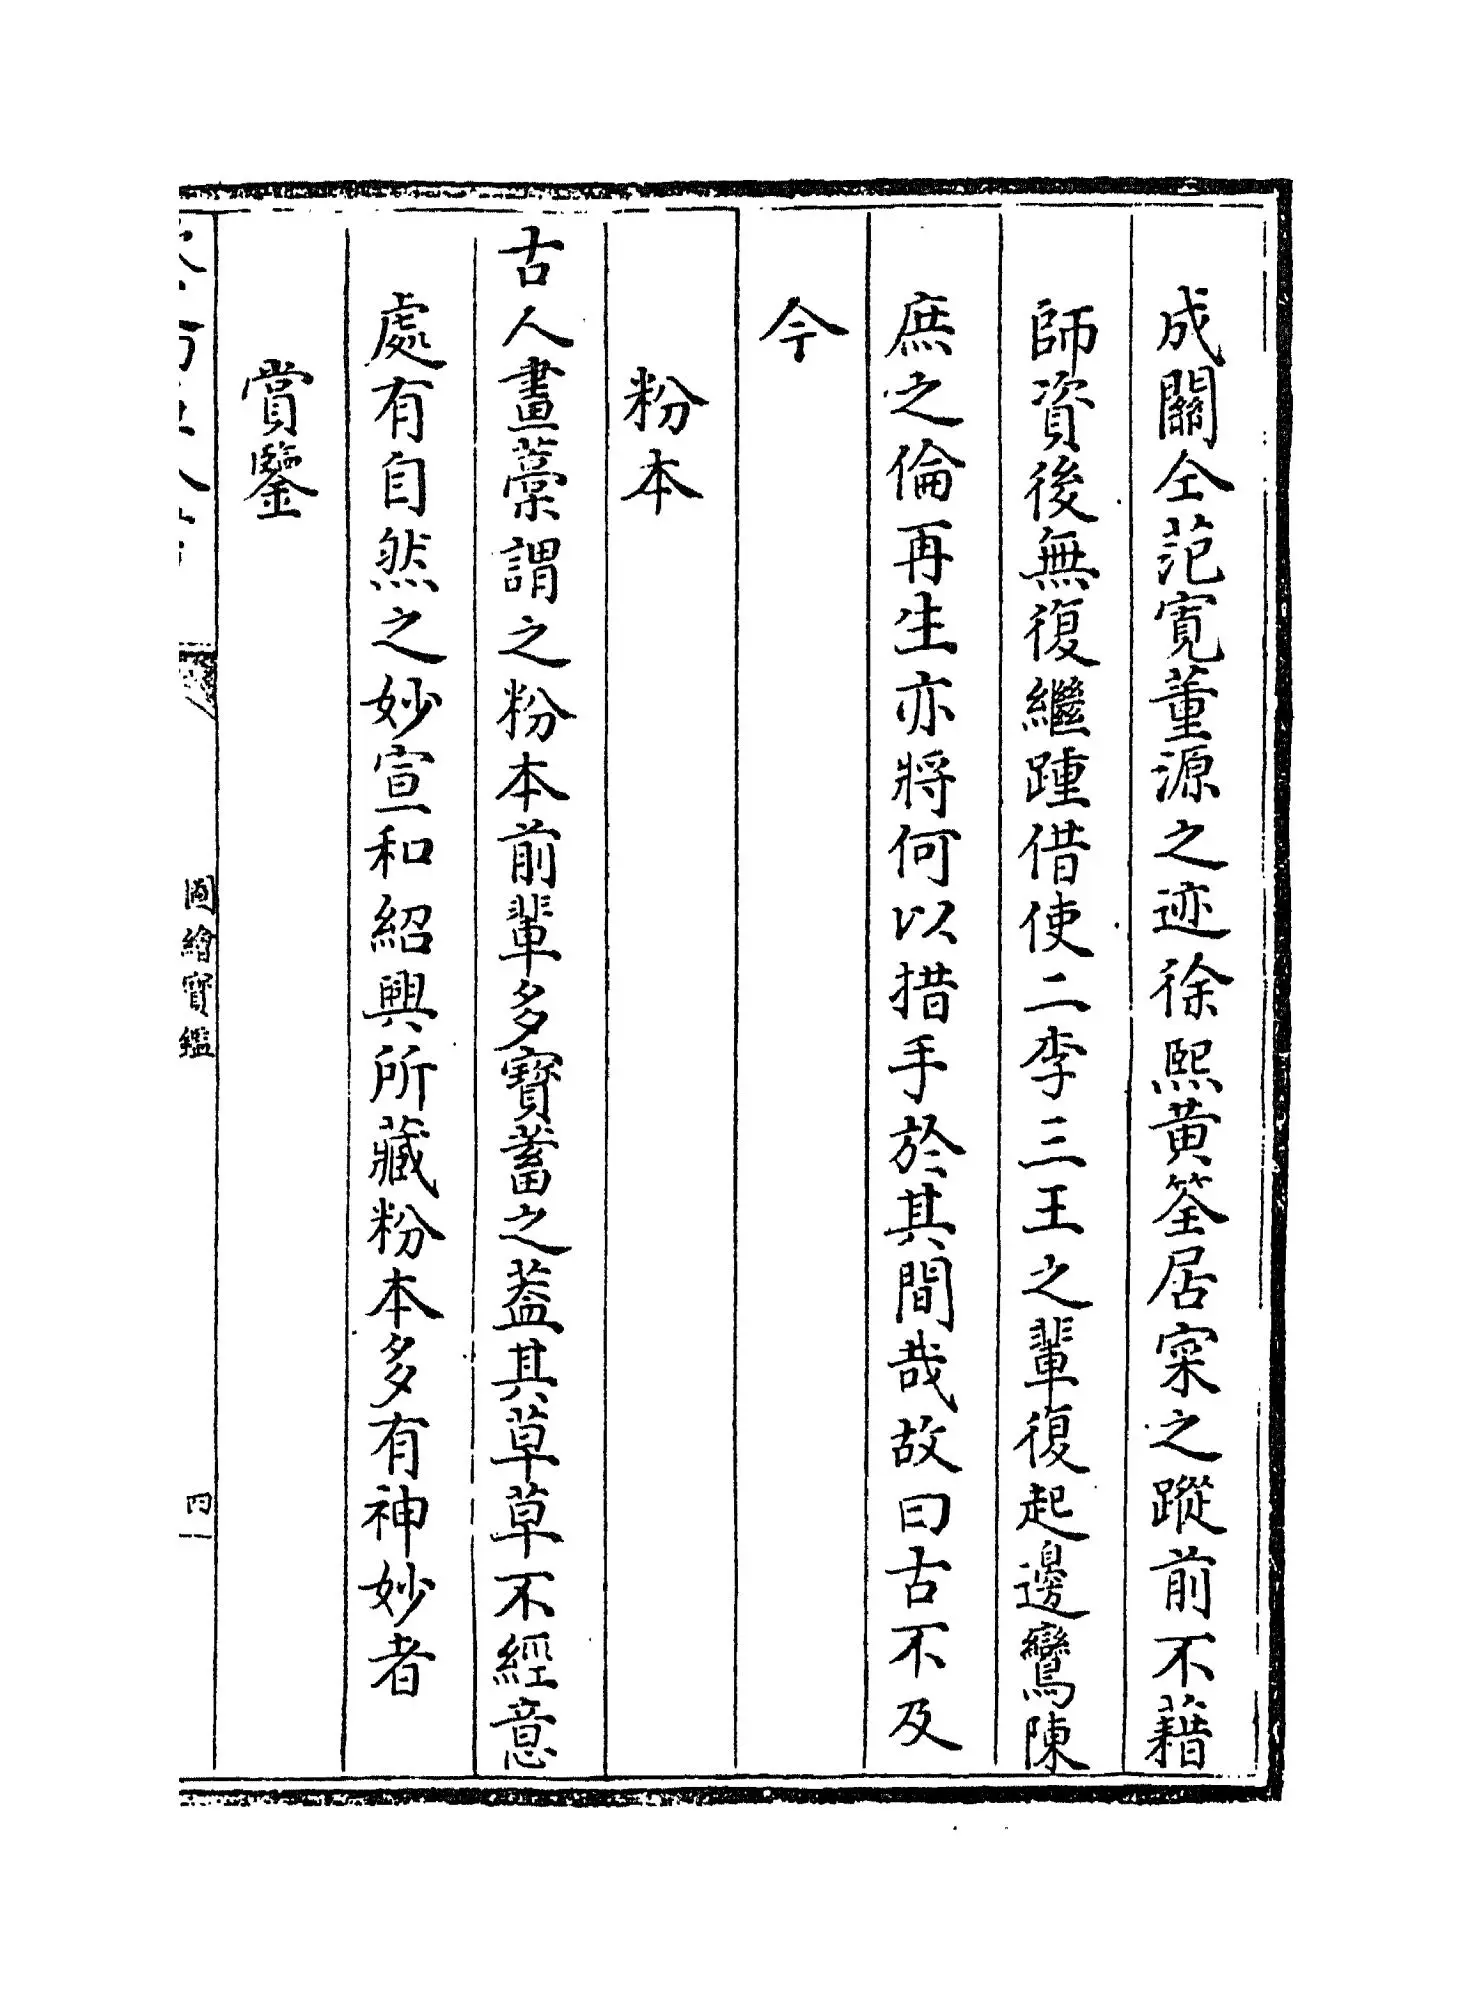 成關仝范寛董源之迹徐熙黄筌居寀之蹤前不藉
師資後無復繼踵借使二李三王之輩復起邊鸞陳
庶之倫再生亦將何以措手於其間哉故曰古不及
今
粉本
古人畫藁謂之粉本前輩多寶蓄之葢其草草不經意
處有自然之妙宣和紹興所藏粉本多有神妙者
賞鑒
圖繪寶鑑
四